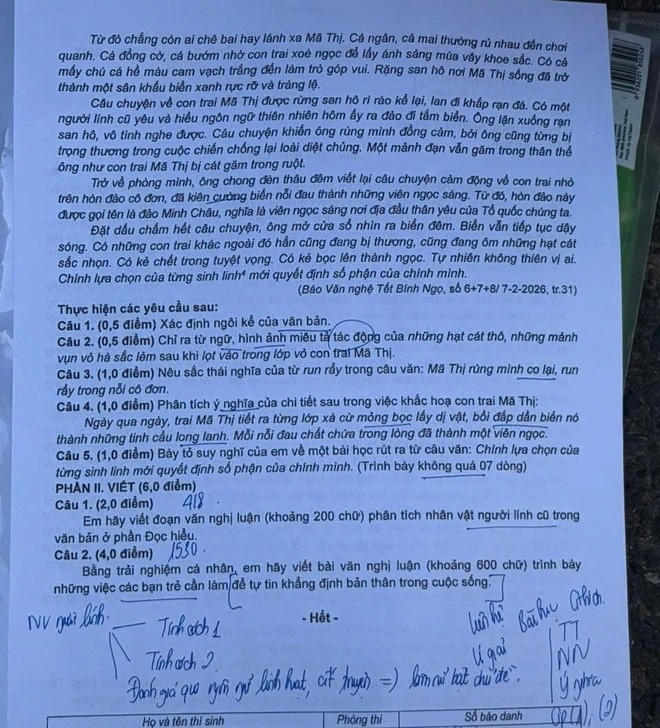 Từ đó chẳng còn ai chê bai hay lánh xa Mã Thị. Cá ngân, cá mai thường rủ nhau đến chơi
quanh. Cá đồng cờ, cá bướm nhờ con trai xoè ngọc để lấy ánh sáng múa vây khoe sắc. Có cả
mấy chú cá hề màu cam vạch trắng đến làm trò góp vui. Rặng san hô nơi Mã Thị sống đã trở
thành một sân khấu biển xanh rực rỡ và tráng lệ.
Câu chuyện về con trai Mã Thị được rừng san hô rì rào kể lại, lan đi khắp rạn đá. Có một
người lính cũ yêu và hiểu ngôn ngữ thiên nhiên hôm ấy ra đảo đi tắm biển. Ông lặn xuống rạn
san hô, vô tình nghe được. Câu chuyện khiến ông rùng mình đồng cảm, bởi ông cũng từng bị
trọng thương trong cuộc chiến chống lại loài diệt chủng. Một mảnh đạn vẫn găm trong thân thể
ông như con trai Mã Thị bị cát găm trong ruột.
Trở về phòng mình, ông chong đèn thâu đêm viết lại câu chuyện cảm động về con trai nhỏ
trên hòn đảo cô đơn, đã kiên cường biến nỗi đau thành những viên ngọc sáng. Từ đó, hòn đảo này
được gọi tên là đảo Minh Châu, nghĩa là viên ngọc sáng nơi địa đầu thân yêu của Tổ quốc chúng ta.
Đặt dấu chấm hết câu chuyện, ông mở cửa sổ nhìn ra biển đêm. Biển vẫn tiếp tục dậy
sóng. Có những con trai khác ngoài đó hẳn cũng đang bị thương, cũng đang ôm những hạt cát
sắc nhọn. Có kẻ chết trong tuyệt vọng. Có kẻ bọc lên thành ngọc. Tự nhiên không thiên vị ai.
Chính lựa chọn của từng sinh linh⁴ mới quyết định số phận của chính mình.
(Báo Văn nghệ Tết Bính Ngọ, số 6+7+8/ 7-2-2026, tr.31)
Thực hiện các yêu cầu sau:
Câu 1. (0,5 điểm) Xác định ngôi kể của văn bản.
Câu 2. (0,5 điểm) Chỉ ra từ ngữ, hình ảnh miêu tả tác động của những hạt cát thô, những mảnh
vụn vỏ hà sắc lẻm sau khi lọt vào trong lớp vỏ con trai Mã Thị.
Câu 3. (1,0 điểm) Nêu sắc thái nghĩa của từ run rẩy trong câu văn: Mã Thị rùng mình co lại, run
rẩy trong nỗi cô đơn.
Câu 4. (1,0 điểm) Phân tích ý nghĩa của chi tiết sau trong việc khắc hoạ con trai Mã Thị:
Ngày qua ngày, trai Mã Thị tiết ra từng lớp xà cừ mỏng bọc lấy dị vật, bồi đắp dần biến nó
thành những tinh cầu long lanh. Mỗi nỗi đau chất chứa trong lòng đã thành một viên ngọc.
Câu 5. (1,0 điểm) Bày tỏ suy nghĩ của em về một bài học rút ra từ câu văn: Chính lựa chọn của
từng sinh linh mới quyết định số phận của chính mình. (Trình bày không quá 07 dòng)
PHẦN II. VIẾT (6,0 điểm)
Câu 1. (2,0 điểm) 418
Em hãy viết đoạn văn nghị luận (khoảng 200 chữ) phân tích nhân vật người lính cũ trong
văn bản ở phần Đọc hiểu.
Câu 2. (4,0 điểm) 1530.
Bằng trải nghiệm cá nhân, em hãy viết bài văn nghị luận (khoảng 600 chữ) trình bày
những việc các bạn trẻ cần làm để tự tin khẳng định bản thân trong cuộc sống.
- Hết -
NV người lính
Tính cách 1
Tính cách 2
Đánh giá qua ngôn ngữ linh hoạt, cốt truyện => làm nổi bật chủ đề
Liên hệ
Bài học
TT
NN
Ý nghĩa
Họ và tên thí sinh Phòng thi Số báo danh